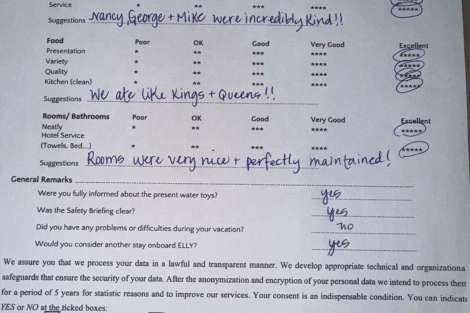 Service * ** *** **** *****
Suggestions Nancy, George + Mike were incredibly kind!!
Food Poor OK Good Very Good Excellent
Presentation * ** *** **** *****
Variety * ** *** **** *****
Quality * ** *** **** *****
Kitchen (clean) * ** *** **** *****
Suggestions We ate like Kings + Queens!!
Rooms/ Bathrooms Poor OK Good Very Good Excellent
Neatly * ** *** **** *****
Hotel Service
(Towels, Bed...) * ** *** **** *****
Suggestions Rooms were very nice + perfectly maintained!
General Remarks
Were you fully informed about the present water toys? yes
Was the Safety Briefing clear? yes
Did you have any problems or difficulties during your vacation? no
Would you consider another stay onboard ELLY? yes
We assure you that we process your data in a lawful and transparent manner. We develop appropriate technical and organizationa
safeguards that ensure the security of your data. After the anonymization and encryption of your personal data we intend to process them
for a period of 5 years for statistic reasons and to improve our services. Your consent is an indispensable condition. You can indicate
YES or NO at the ticked boxes: